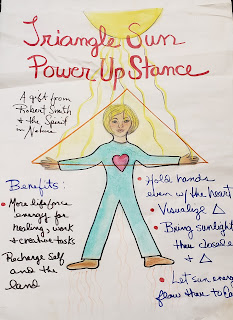 Triangle Sun
Power Up Stance
A gift from
Robert Smith
+ the Spirit
in Nature
Benefits:
• More life force
energy for
healing, work
+ creative tasks
Recharge Self
and the
land
• Hold hands
even w/ the heart
• Visualize △
• Bring sunlight
thru closed
+ △
• Let sun energy
flow thru to